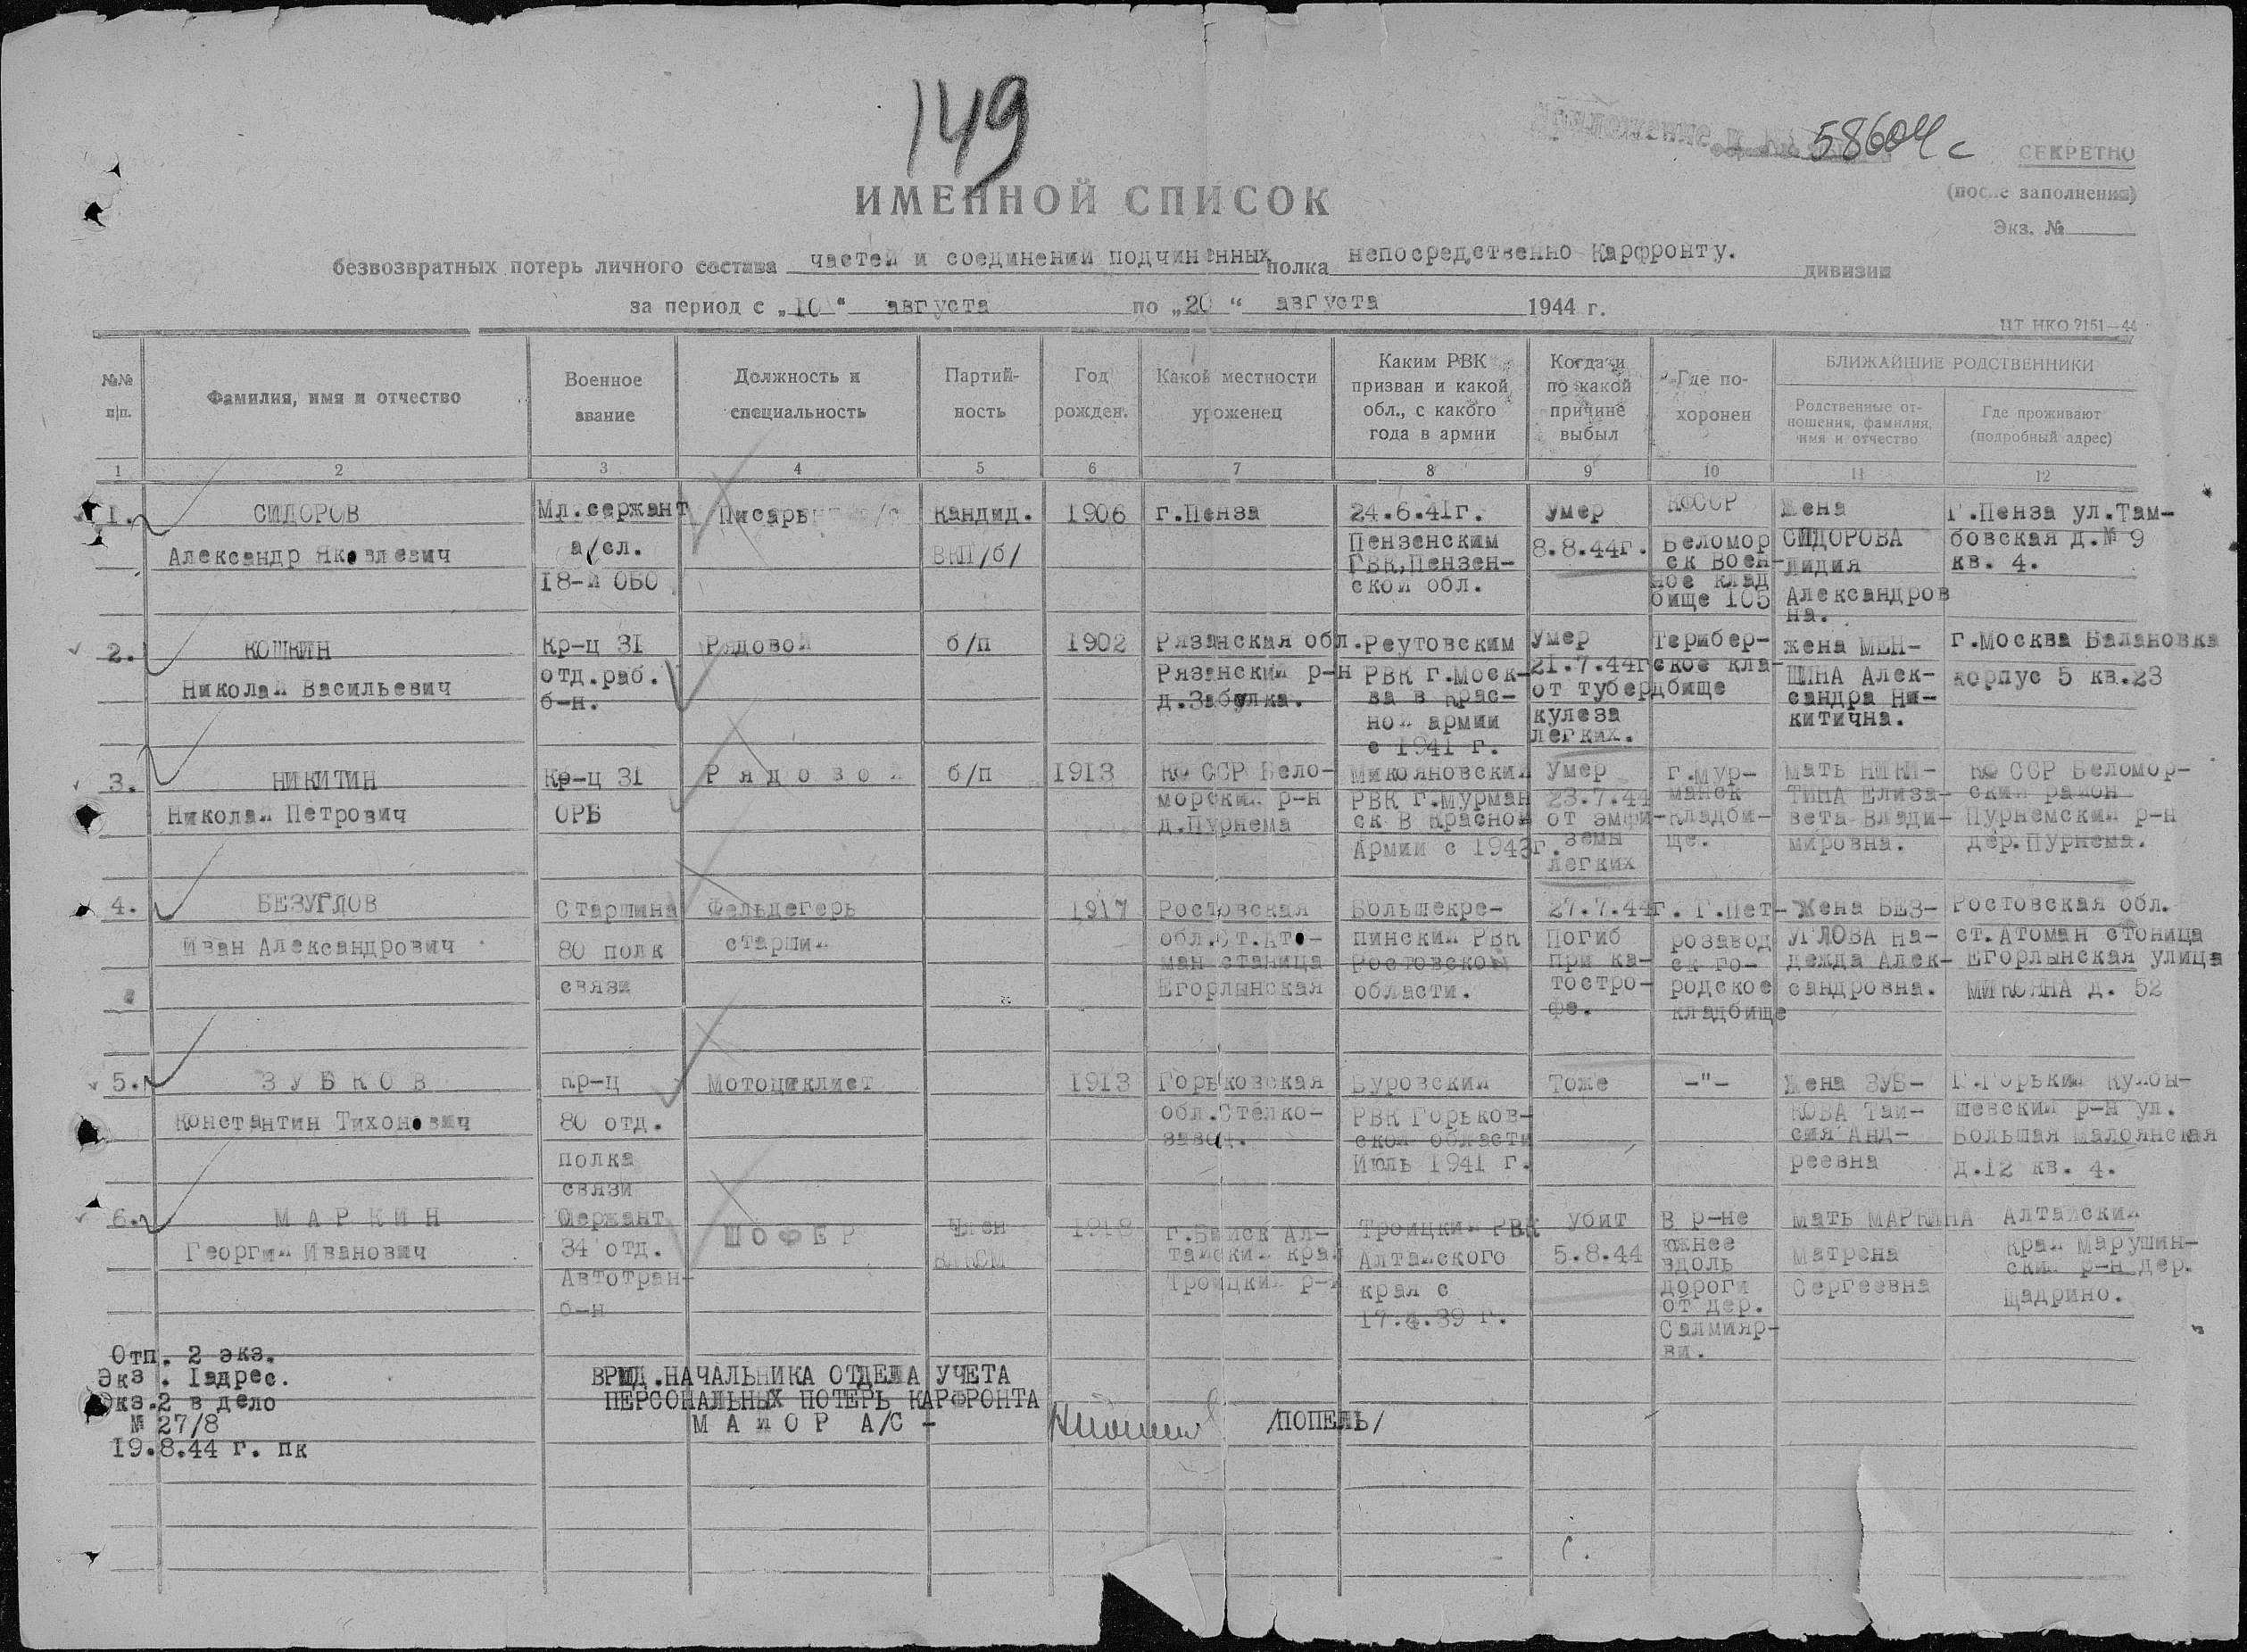 149
58604 с
СЕКРЕТНО
(после заполнения)
Экз. №
ИМЕННОЙ СПИСОК
безвозвратных потерь личного состава частей и соединений подчиненных полка непосредственно Карфронту. дивизии
за период с „10“ августа по „20“ августа 1944 г.
ЦТ НКО 2151—44
№№ п/п.
Фамилия, имя и отчество
Военное звание
Должность и специальность
Партий-
ность
Год рожден.
Какой местности уроженец
Каким РВК
призван и какой
обл., с какого
года в армии
Когда и
по какой
причине
выбыл
Где по-
хоронен
БЛИЖАЙШИЕ РОДСТВЕННИКИ
Родственные от-
ношения, фамилия,
имя и отчество
Где проживают
(подробный адрес)
1 2 3 4 5 6 7 8 9 10 11 12
1.
СИДОРОВ
Александр Яковлевич
Мл.сержант
а/сл.
18-й ОБО
Писарь
кандид.
ВКП/б/
1906
г.Пенза
24.6.41г.
Пензенским
ГВК,Пензен-
ской обл.
Умер
8.8.44г.
КФССР
Беломор
ск Воен-
ное клад
бище 105
Жена
СИДОРОВА
Лидия
Александров
на.
Г.Пенза ул.Там-
бовская д.№ 9
кв. 4.
2.
КОШКИН
Николай Васильевич
Кр-ц 31
отд.раб.
б-н.
Рядовой
б/п
1902
Рязанская обл.
Рязанский р-н
д.Забулка.
Реутовским
РВК г.Моск-
ва в Крас-
ной армии
с 1941 г.
Умер
21.7.44г
от тубер
кулеза
легких.
Терибер-
ское кла-
дбище
жена МЕН-
ШИНА Алек-
сандра Ни-
китична.
г.Москва Балановка
корпус 5 кв.23
3.
НИКИТИН
Николай Петрович
Кр-ц 31
ОРБ
Р я д о в о й
б/п
1913
КФ ССР Бело-
морский р-н
д.Пурнема
Микояновский
РВК г.Мурман
ск в Красной
Армии с 1943г.
Умер
23.7.44
от эмфи-
земы
легких
г.Мур-
манск
кладби-
ще.
Мать НИКИ-
ТИНА Елиза-
вета Влади-
мировна.
КФ ССР Беломор-
ский район
Пурнемский р-н
дер.Пурнема.
4.
БЕЗУГЛОВ
Иван Александрович
Старшина
80 полк
связи
Фельдегерь
старший
1917
Ростовская
обл.Ст.Ато-
ман станица
Егорлынская
Большекре-
пинский РВК
Ростовской
области.
27.7.44г.
Погиб
при ка-
тостро-
фе.
Г.Пет-
розавод
ск го-
родское
кладбище
Жена БЕЗ-
УГЛОВА На-
дежда Алек-
сандровна.
Ростовская обл.
ст.Атоман стоница
Егорлынская улица
МИКОЯНА д. 52
5.
З У Б К О В
Константин Тихонович
кр-ц
80 отд.
полка
связи
Мотоциклист
1913
Горьковская
обл.Стелко-
завод.
Буровский
РВК Горьков-
ской области
Июль 1941 г.
Тоже
-"-
Жена ЗУБ-
КОВА Таи-
сия Анд-
реевна
Г.Горький Куйбы-
шевский р-н ул.
Большая Малоянская
д.12 кв. 4.
6.
М А Р К И Н
Георгий Иванович
Сержант
34 отд.
Автотран-
б-н
ШОФЕР
Член
ВЛКСМ
1918
г.Бийск Ал-
тайский край
Троицкий р-н
Троицкий РВК
Алтайского
края с
17.4.39 г.
Убит
5.8.44
В р-не
южнее
вдоль
дороги
от дер.
Салмияр-
ви.
Мать МАРКИНА
Матрена
Сергеевна
Алтайский
край Марушин-
ский р-н дер.
Щадрино.
Отп. 2 экз.
Экз. 1адрес.
Экз.2 в дело
№ 27/8
19.8.44 г. пк
ВРИД.НАЧАЛЬНИКА ОТДЕЛА УЧЕТА
ПЕРСОНАЛЬНЫХ ПОТЕРЬ КАРФРОНТА
М А Й О Р А/С - /ПОПЕЛЬ/